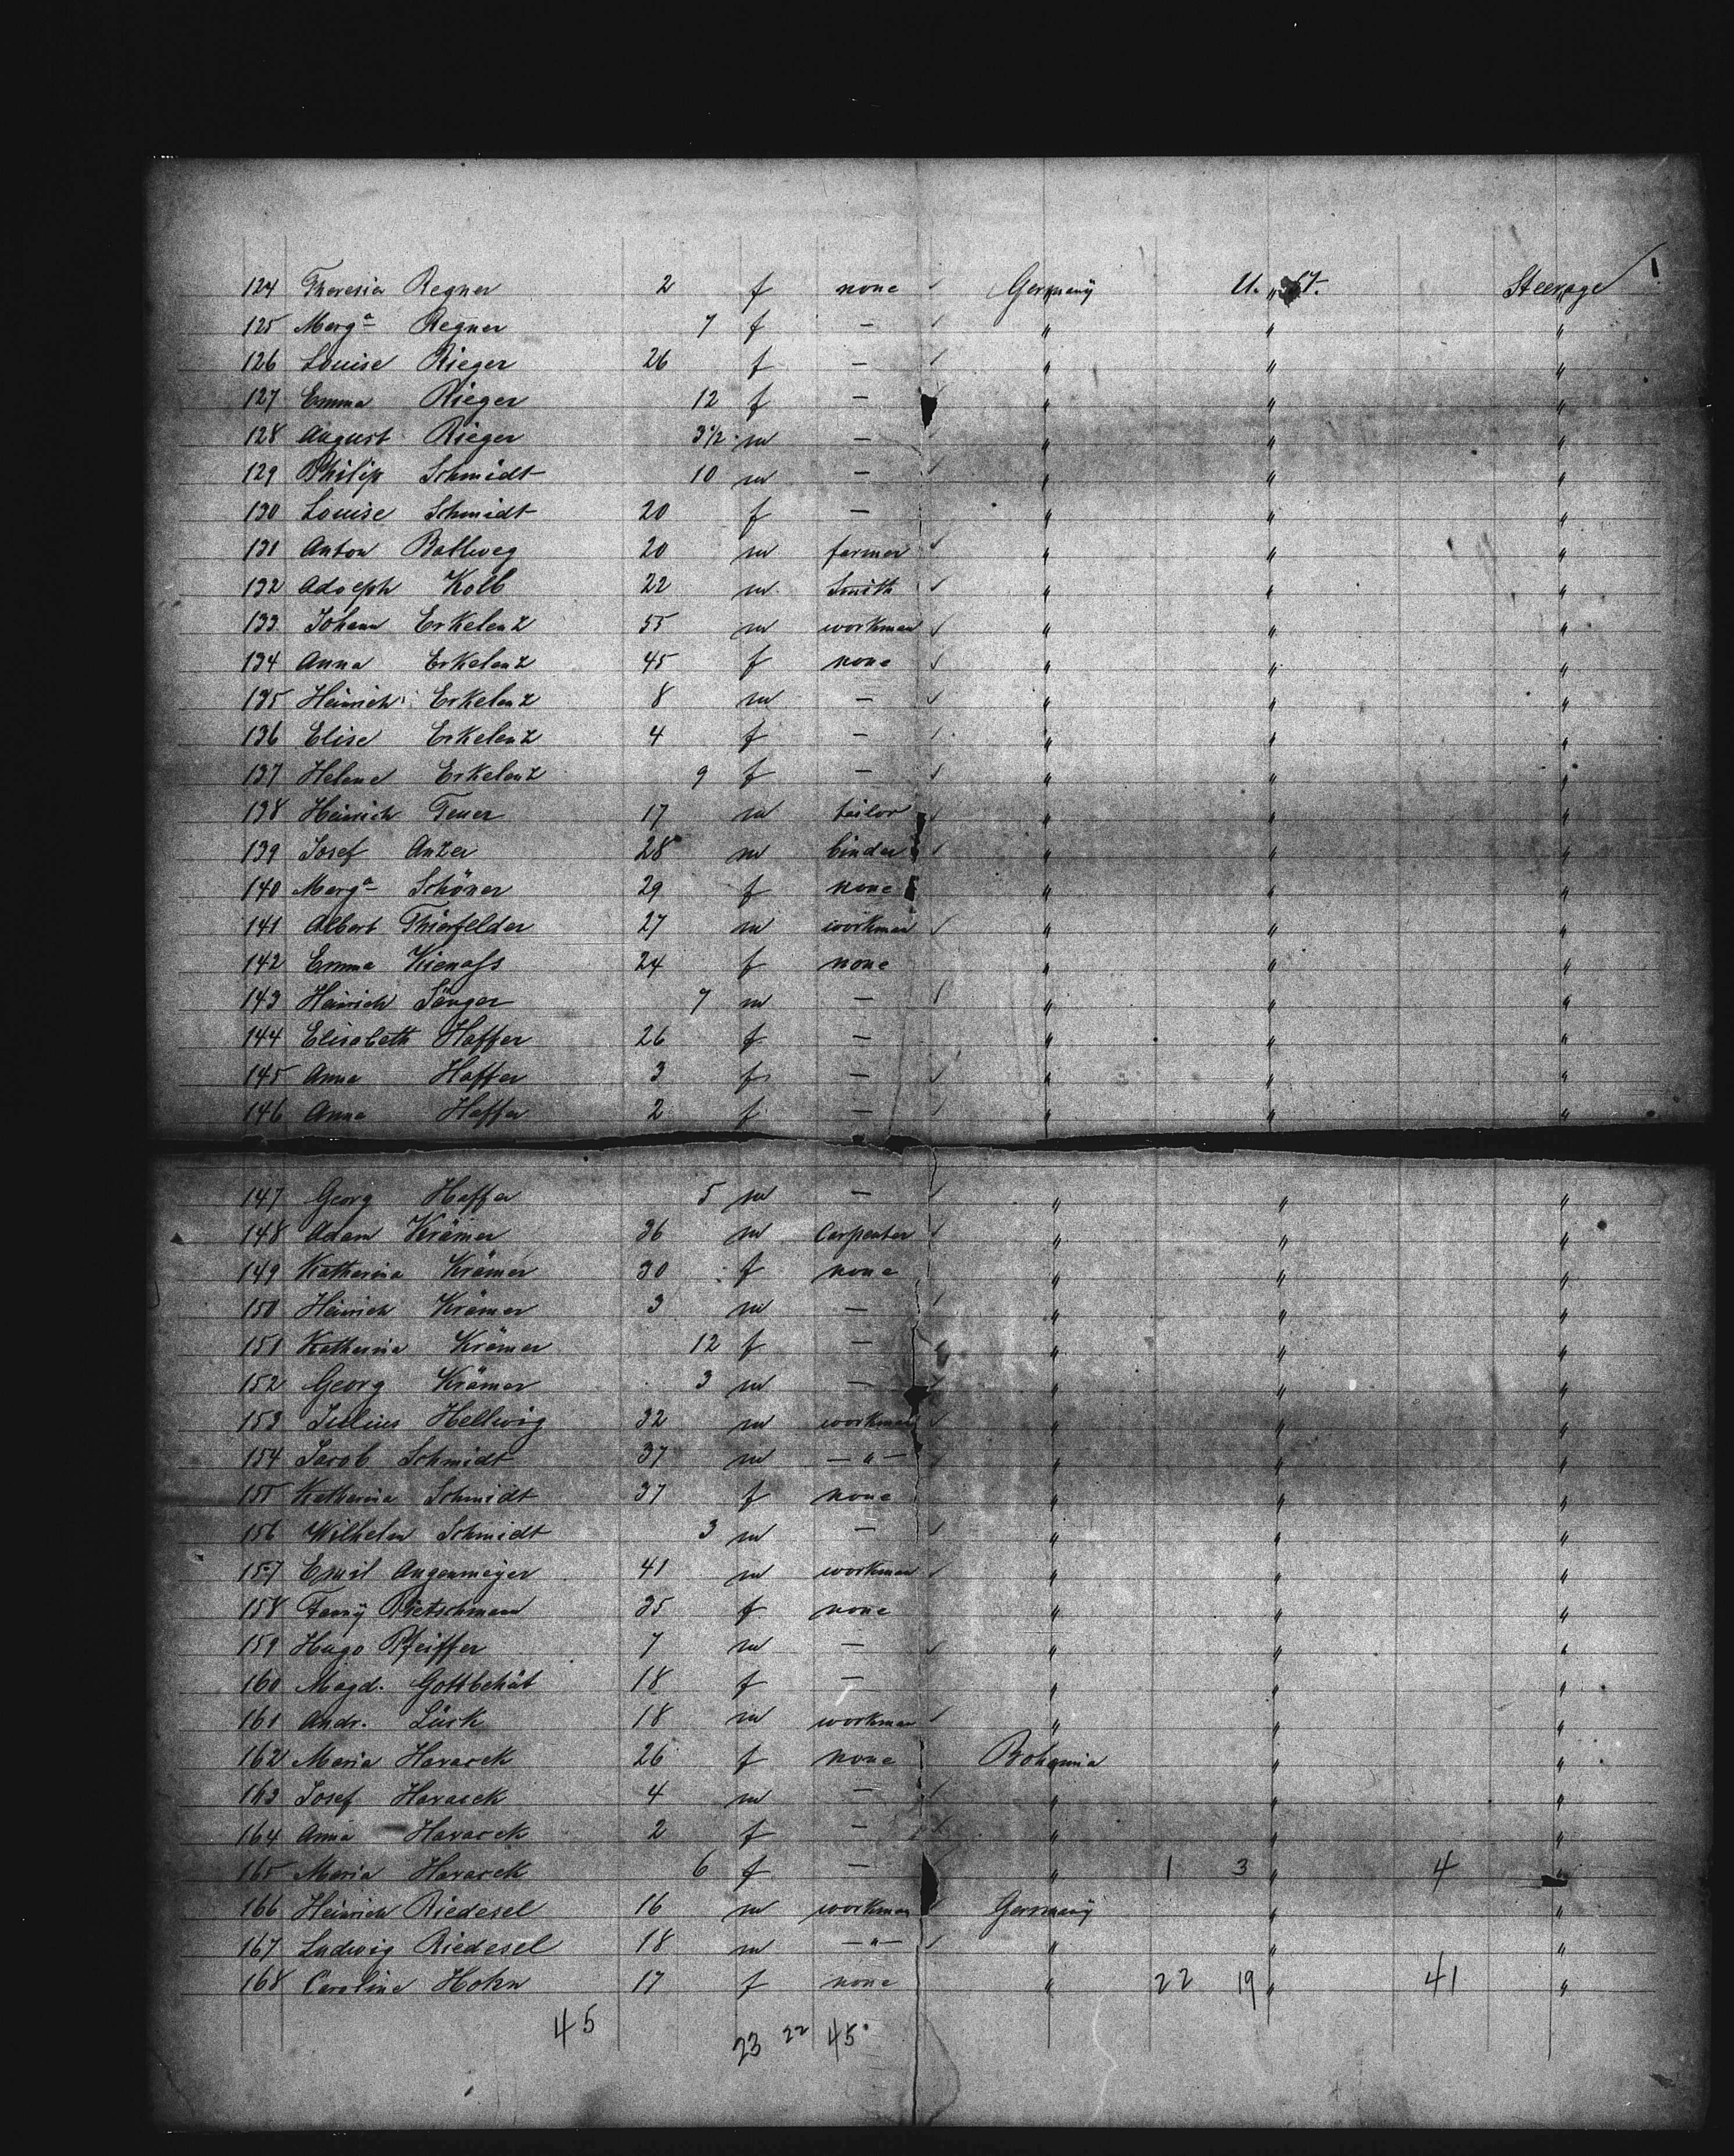 124 Theresia Regner 2 f none ✓ Germany U. St. Steerage
125 Marg<sup>a</sup> Regner 7 f — ✓ " " "
126 Louise Rieger 26 f — ✓ " " "
127 Emma Rieger 12 f — ✓ " " "
128 August Rieger 3½ m — ✓ " " "
129 Philip Schmidt 10 m — ✓ " " "
130 Louise Schmidt 20 f — " " "
131 Anton Ballweg 20 m farmer ✓ " " "
132 Adolph Kolb 22 m Smith ✓ " " "
133 Johann Erkelenz 55 m workman ✓ " " "
134 Anna Erkelenz 45 f none ✓ " " "
135 Heinrich Erkelenz 8 m — ✓ " " "
136 Elise Erkelenz 4 f — ✓ " " "
137 Helene Erkelenz 9 f — ✓ " " "
138 Heinrich Feuer 17 m tailor ✓ " " "
139 Josef Anzer 28 m binder ✓ " " "
140 Marg<sup>a</sup> Schöner 29 f none " " "
141 Albert Thierfelder 27 m workman ✓ " " "
142 Emma Kienass 24 f none " " "
143 Heinrich Sänger 7 m — ✓ " " "
144 Elisabeth Haffer 26 f — " " "
145 Anna Haffer 3 f — ✓ " " "
146 Anna Haffer 2 f — ✓ " " "
147 Georg Haffer 5 m — ✓ " " "
148 Adam Krämer 36 m Carpenter ✓ " " "
149 Katherina Krämer 30 f none " " "
150 Heinrich Krämer 3 m — ✓ " " "
151 Katherina Krämer 12 f — ✓ " " "
152 Georg Krämer 3 m — ✓ " " "
153 Julius Hellwig 32 m workman ✓ " " "
154 Jacob Schmidt 37 m — " — ✓ " " "
155 Katherina Schmidt 37 f none " " "
156 Wilhelm Schmidt 3 m — ✓ " " "
157 Emil Angenmeyer 41 m workman ✓ " " "
158 Fanny Rietschmann 35 f none " " "
159 Hugo Pfeiffer 7 m — ✓ " " "
160 Magd. Gottbehüt 18 f — " " "
161 Andr. Lürk 18 m workman ✓ " " "
162 Maria Havacek 26 f none Bohemia " "
163 Josef Havacek 4 m — ✓ " " "
164 Anna Havacek 2 f — ✓ " " "
165 Maria Havacek 6 f — " 1 3 " 4 "
166 Heinrich Riedesel 16 m workman ✓ Germany " "
167 Ludwig Riedesel 18 m — " — ✓ " " "
168 Caroline Hohn 17 f none " 22 19 " 41 "
45 23 22 45